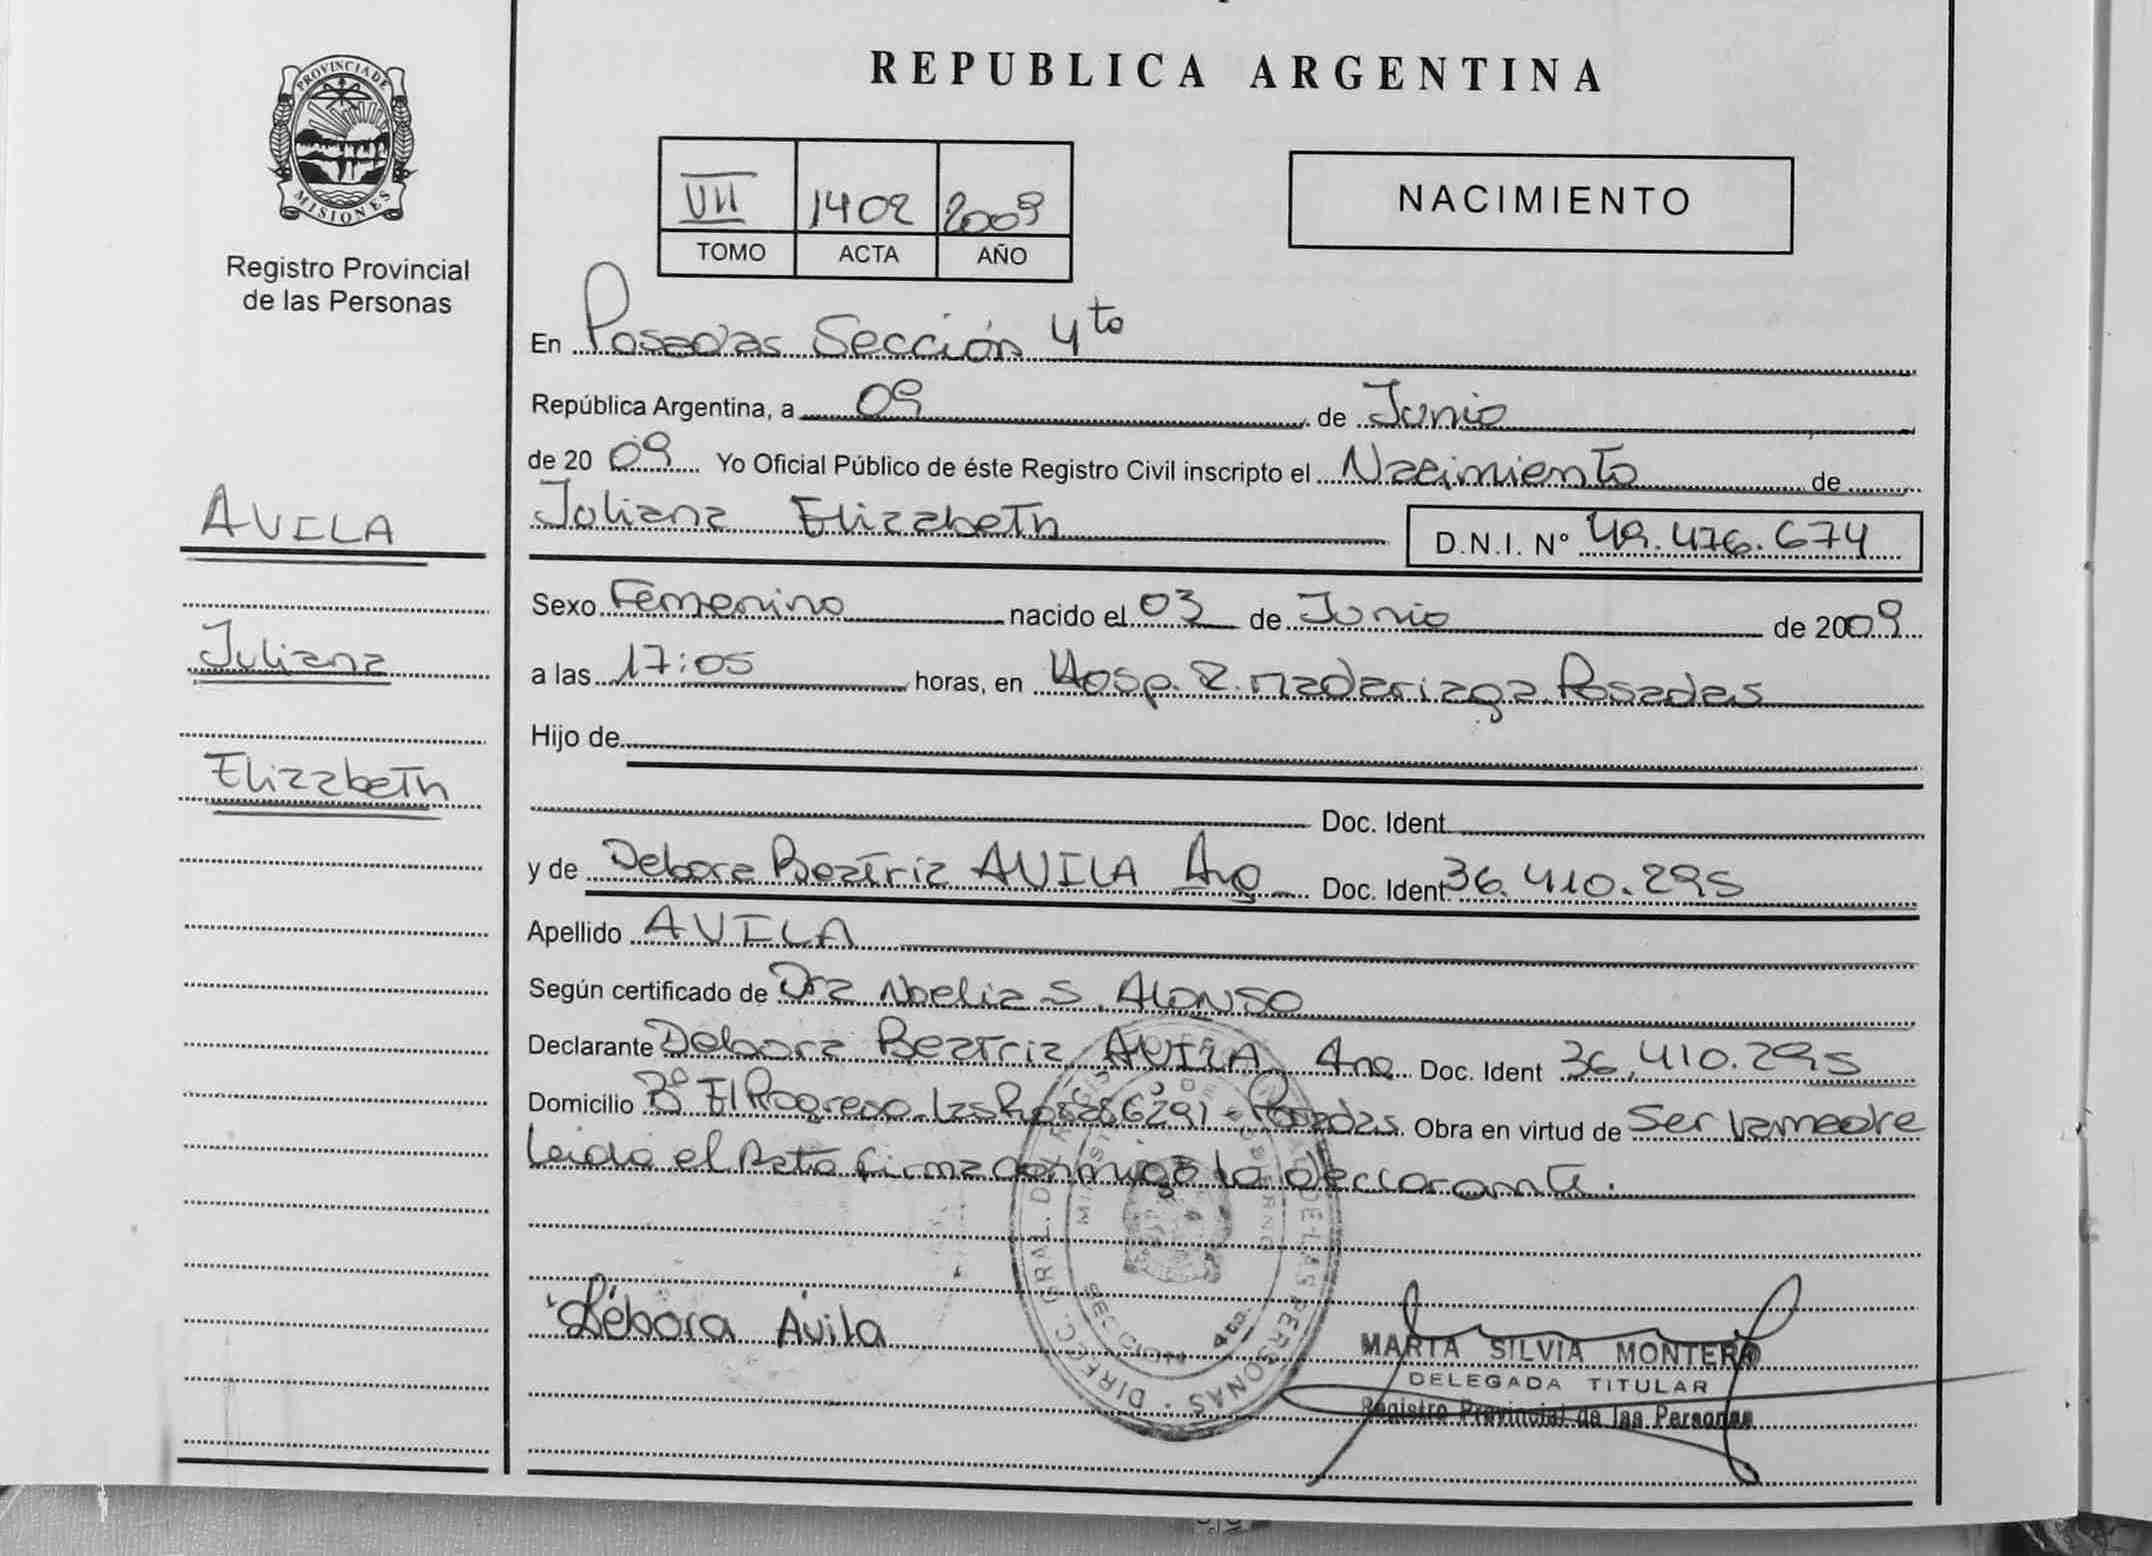 REPUBLICA ARGENTINA
PROVINCIA DE
MISIONES
Registro Provincial
de las Personas
VII 1402 2009
TOMO ACTA AÑO
NACIMIENTO
En Posadas Sección 4to
República Argentina, a 09 de Junio
de 20 09 Yo Oficial Público de éste Registro Civil inscripto el Nacimiento de
Juliana Elizabeth D.N.I. Nº 49.476.674
AVILA
Juliana
Elizabeth
Sexo Femenino nacido el 03 de Junio de 2009
a las 17:05 horas, en Hosp. R. Madariaga Posadas
Hijo de
Doc. Ident.
y de Debora Beatriz AVILA Arg Doc. Ident. 36.410.295
Apellido AVILA
Según certificado de Dra Noelia S. Alonso
Declarante Debora Beatriz AVILA Arg Doc. Ident 36.410.295
Domicilio Bº El Progreso Las 6291 - Posadas. Obra en virtud de Ser la madre
Leida el Acta firma conmigo la declarante.
Débora Avila
DIRECC. GRAL. DE LAS PERSONAS
SECCION 4to.
MARTA SILVIA MONTERO
DELEGADA TITULAR
Registro Provincial de las Personas